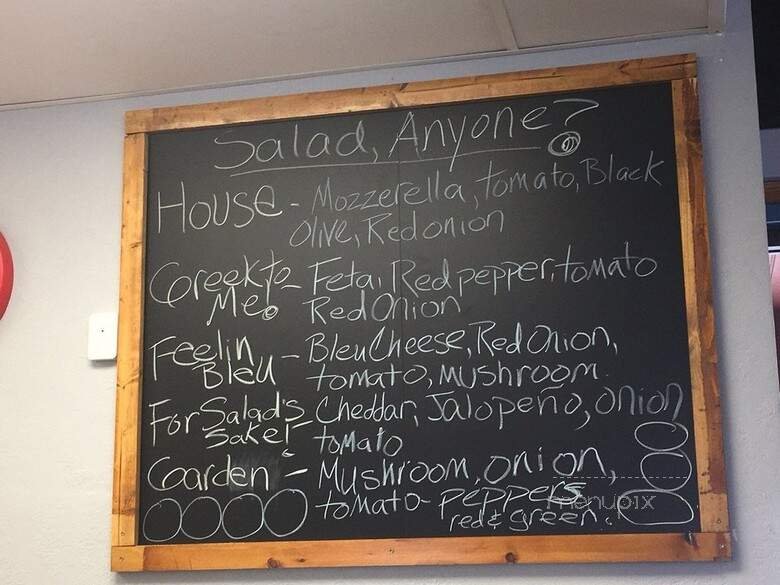 Salad, Anyone?
House - Mozzerella, tomato, Black
Olive, Red onion
Greek to Me! - Feta, Red pepper, tomato
Red Onion
Feelin Bleu - Bleu Cheese, Red Onion,
tomato, mushroom.
For Salad's Sake! - Cheddar, Jalopeño, onion
tomato
Garden - Mushroom, onion,
tomato - peppers
red & green.
menupix